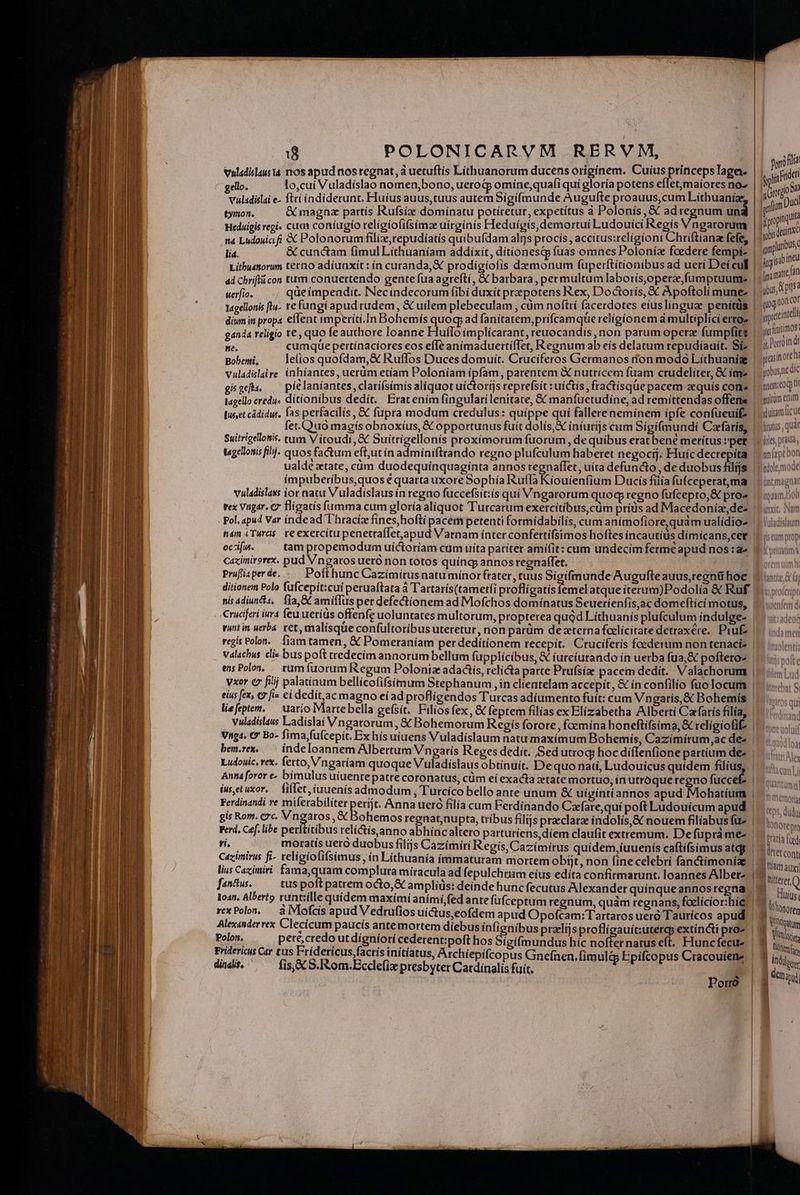 18 POLONICARVM RERVM,
Vuladislaus Ia nos apud nos regnat, à uetustis Lithuanorum ducens originem. Cuius princeps Iage-
gello. lo, cui Vuladislao nomen, bono, ueroq; omine, quasi qui gloria potens esset, maiores no-
Vuladislai e- stri indiderunt. Huius auus, tuus autem Sigismunde Auguste proauus, cum Lithuaniæ,
tymon. & magnæ partis Russiæ dominatu potiretur, expetitus à Polonis, & ad regnum unà
Heduigis regi- cum coniugio religiosissimæ uirginis Heduigis, demortui Ludouici Regis Vngarorum
na Ludouici fi & Polonorum filiæ, repudiatis quibusdam alijs procis, accitus: religioni Christianæ sese,
lia. & cunctam simul Lithuaniam addixit, ditionesq; suas omnes Poloniæ foedere sempi-
Lithuanorum terno adiunxit: in curanda, & prodigiosis dæmonum superstitionibus ad ueri Dei cul
ad Christū con tum conuertendo gente sua agresti, & barbara, permultum laboris, operæ, sumptuum-
uersio. qúe impendit. Nec indecorum sibi duxit præpotens Rex, Doctoris, & Apostoli mune-
Iagellonis stu- re fungi apud rudem, & uilem plebeculam, cùm nostri sacerdotes eius linguæ penitùs
dium in propa essent imperiti. In Bohemis quoq; ad sanitatem, priscamqúe religionem à multiplici erro-
ganda religio re, quo se authore Ioanne Husso implicarant, reuocandis, non parum operæ sumpsit:
ne. cumqúe pertinaciores eos esse animaduertisset, Regnum ab eis delatum repudiauit. Si-
Bohemi, lesios quosdam, & Russos Duces domuit. Cruciferos Germanos non modò Lithuaniæ
Vuladislai re inhiantes, uerùm etiam Poloniam ipsam, parentem & nutricem suam crudeliter, & im-
gis gesta. piè laniantes, clarissimis aliquot uictorijs repressit: uictis, fractisqúe pacem æquis con-
Iagello credu- ditionibus dedit. Erat enim singulari lenitate, & mansuetudine, ad remittendas offen-
lus, et cādidus. sas perfacilis, & supra modum credulus: quippe qui fallere neminem ipse consueuis-
set. Quo magis obnoxius, & opportunus fuit dolis, & iniurijs cum Sigismundi Cæsaris,
Suitrigellonis. tum Vitoudi, & Suitrigellonis proximorum suorum, de quibus erat bene meritus: per
Iagellonis filij. quos factum est, ut in administrando regno plusculum haberet negocij. Huic decrepita
ualdè ætate, cùm duodequinquaginta annos regnasset, uita defuncto, de duobus filijs
impuberibus, quos è quarta uxore Sophia Russa Kiouiensium Ducis filia susceperat, ma
Vuladislaus ior natu Vuladislaus in regno successit: is qui Vngarorum quoq; regno suscepto, & pro-
rex Vngar. & fligatis summa cum gloria aliquot Turcarum exercitibus, cùm priùs ad Macedoniæ, de-
Pol. apud Var inde ad Thraciæ fines, hosti pacem petenti formidabilis, cum animosiore, quàm ualidio-
nam à Turcis re exercitu penetrasset, apud Varnam inter confertissimos hostes incautiùs dimicans, cer
occisus. tam propemodum uictoriam cum uita pariter amisit: cum undecim ferme apud nos: a-
Cazimirus rex. pud Vngaros uerò non totos quinq; annos regnasset.
Prussia per de. Post hunc Cazimirus natu minor frater, tuus Sigismunde Auguste auus, regnū hoc
ditionem Polo suscepit: cui peruastata à Tartaris (tametsi profligatis semel atque iterum) Podolia & Rus
nis adiuncta. sia, & amissus per defectionem ad Moschos dominatus Seueriensis, ac domestici motus,
Cruciferi iura seu ueriùs offensæ uoluntates multorum, propterea quòd Lithuanis plusculum indulge-
runt in uerba ret, malisqúe consultoribus uteretur, non parùm de æterna foelicitate detraxêre. Prus-
regis Polon. siam tamen, & Pomeraniam per deditionem recepit. Cruciferis foederum non tenaci-
Valachus clie bus post tredecim annorum bellum supplicibus, & iureiurando in uerba sua, & postero-
ens Polon. rum suorum Regum Poloniæ adactis, relicta parte Prussiæ pacem dedit. Valachorum
Vxor & filij palatinum bellicosissimum Stephanum, in clientelam accepit, & in consilio suo locum
eius sex, & fi- ei dedit, ac magno ei ad profligendos Turcas adiumento fuit: cum Vngaris, & Bohemis
liæ septem. uario Marte bella gessit. Filios sex, & septem filias ex Elizabetha Alberti Cæsaris filia,
Vuladislaus Ladislai Vngarorum, & Bohemorum Regis sorore, foemina honestissima, & religiosis-
Vnga. & Bo- sima, suscepit. Ex his uiuens Vuladislaum natu maximum Bohemis, Cazimirum, ac de-
hem. rex. inde Ioannem Albertum Vngaris Reges dedit. Sed utroq; hoc dissensione partium de-
Ludouic. rex. serto, Vngariam quoque Vuladislaus obtinuit. De quo nati, Ludouicus quidem filius,
Anna soror e- bimulus uiuente patre coronatus, cùm ei exacta ætate mortuo, in utroque regno succes-
ius, et uxor. sisset, iuuenis admodum, Turcico bello ante unum & uiginti annos apud Mohatium
Ferdinandi re miserabiliter perijt. Anna uerò filia cum Ferdinando Cæsare, qui post Ludouicum apud
gis Rom. &c. Vngaros, & Bohemos regnat, nupta, tribus filijs præclaræ indolis, & nouem filiabus su-
Ferd. Cæs. libe perstitibus relictis, anno abhinc altero parturiens, diem clausit extremum. De suprà me-
ri. moratis uerò duobus filijs Cazimiri Regis, Cazimirus quidem, iuuenis castissimus atq;
Cazimirus fi- religiosissimus, in Lithuania immaturam mortem obijt, non sine celebri sanctimoniæ
lius Cazimiri fama, quam complura miracula ad sepulchrum eius edita confirmarunt. Ioannes Alber-
sanctus. tus post patrem octo, & ampliùs: deinde hunc secutus Alexander quinque annos regna
Ioan. Albert9 runt: ille quidem maximi animi, sed ante susceptum regnum, quàm regnans, foelicior: hic
rex Polon. à Moscis apud Vedrusios uictus, eosdem apud Oposcam: Tartaros uerò Tauricos apud
Alexander rex Clecicum paucis ante mortem diebus insignibus prælijs profligauit: uterq; extincti pro-
Polon. pere, credo ut digniori cederent: post hos Sigismundus hic noster natus est. Hunc secu-
Fridericus Car tus Fridericus, sacris initiatus, Archiepiscopus Gnesnen. simulq; Episcopus Cracouien-
dinalis. sis, & S. Rom. Ecclesiæ presbyter Cardinalis fuit.
Porrò